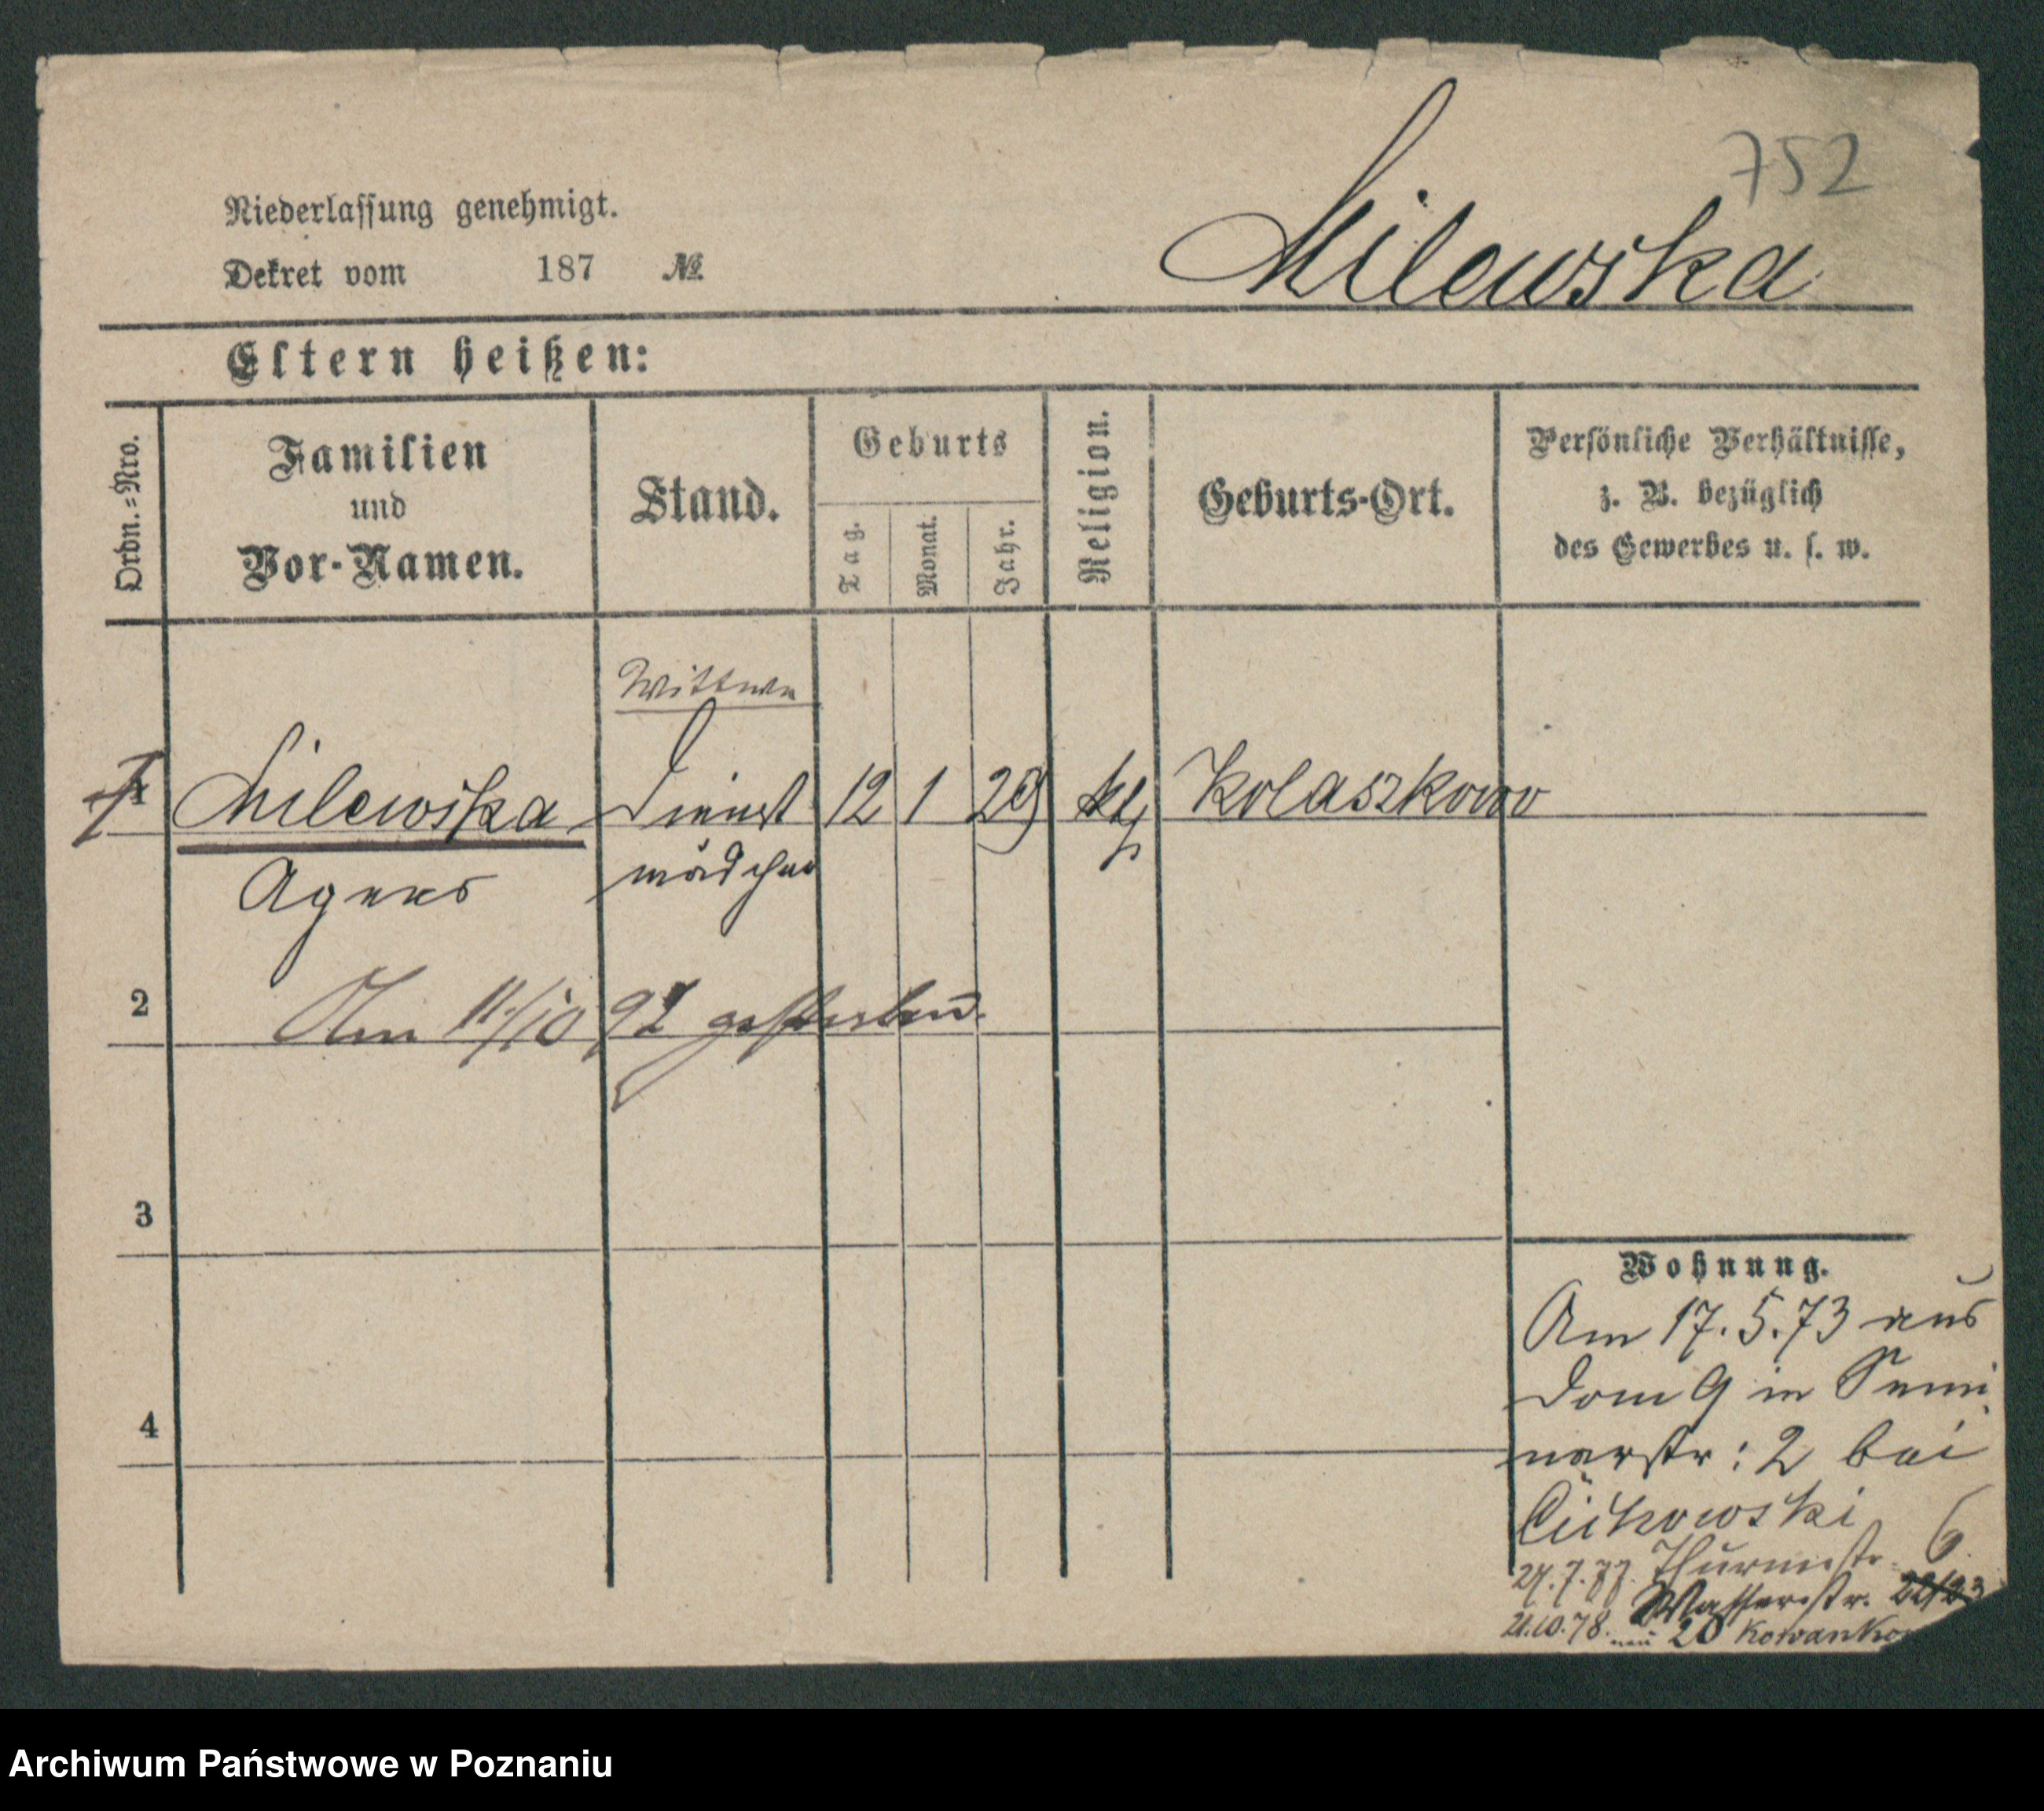 752
Niederlassung genehmigt.
Dekret vom 187 № Milewska
Eltern heißen:
Ordn.=Nro.
Familien
und
Vor-Namen.
Stand.
Geburts
Tag.
Monat.
Jahr.
Religion.
Geburts-Ort.
Persönliche Verhältnisse,
z. B. bezüglich
des Gewerbes u. s. w.
Wittwe
1 Milewska Dienst 12 1 29 kth Kolaszkowo
Agnes mädchen
2 Am 11/10 92 gestorben.
3
4
Wohnung.
Am 17. 5. 73 aus
Dom 9 in Semi
narstr: 2 bei
27. 7. 77. Thurmstr. 6
Wasserstr. 22/23
21.10.78. 20
Archiwum Państwowe w Poznaniu